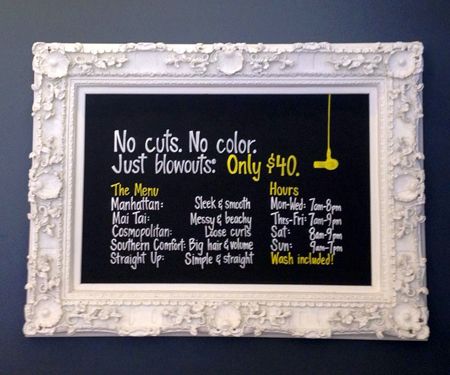 No cuts. No color.
Just blowouts: Only $40.
The Menu
Manhattan: Sleek & smooth
Mai Tai: Messy & beachy
Cosmopolitan: Loose curls
Southern Comfort: Big hair & volume
Straight Up: Simple & straight
Hours
Mon-Wed: 7am-8pm
Thrs-Fri: 7am-9pm
Sat: 8am-9pm
Sun: 9am-7pm
Wash included!